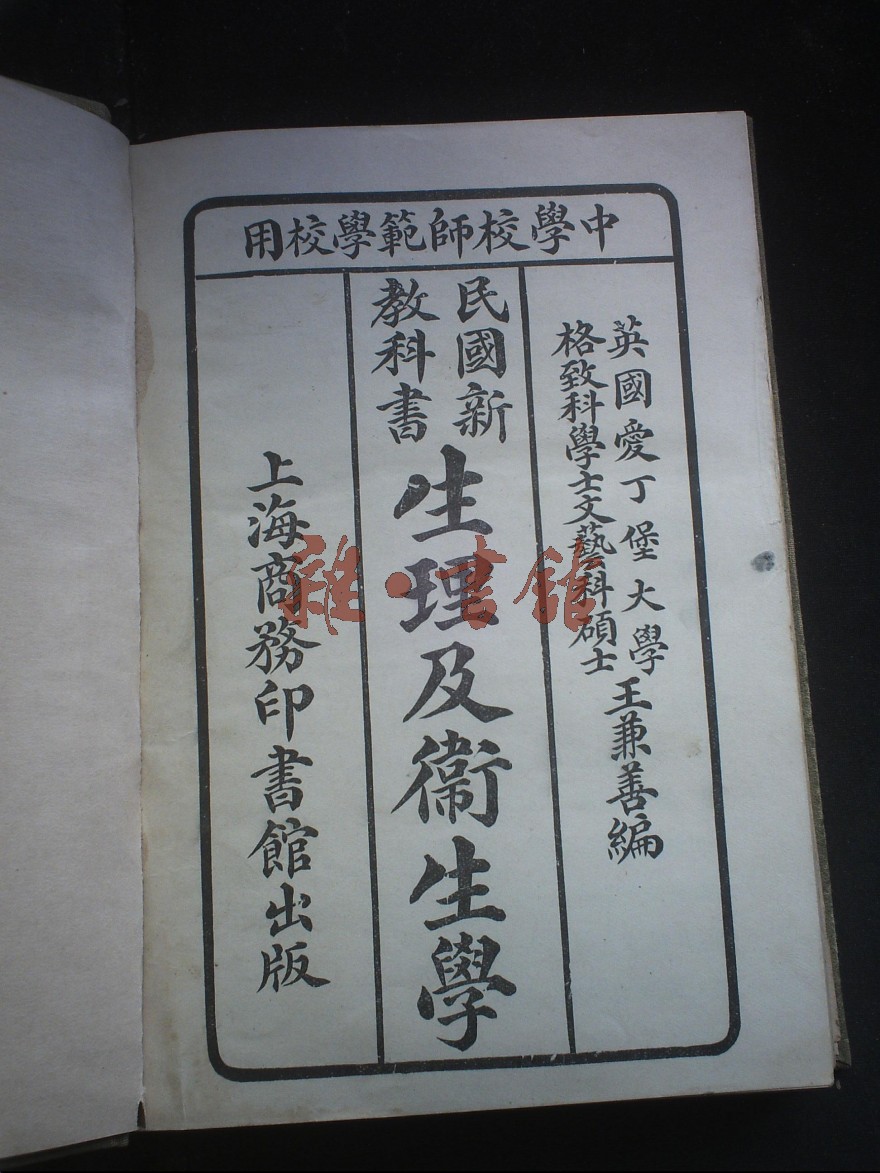 中學校師範學校用
英國愛丁堡大學
格致科學士文藝科碩士
王兼善編
民國新
教科書
生理及衞生學
上海商務印書館出版
雜·書館